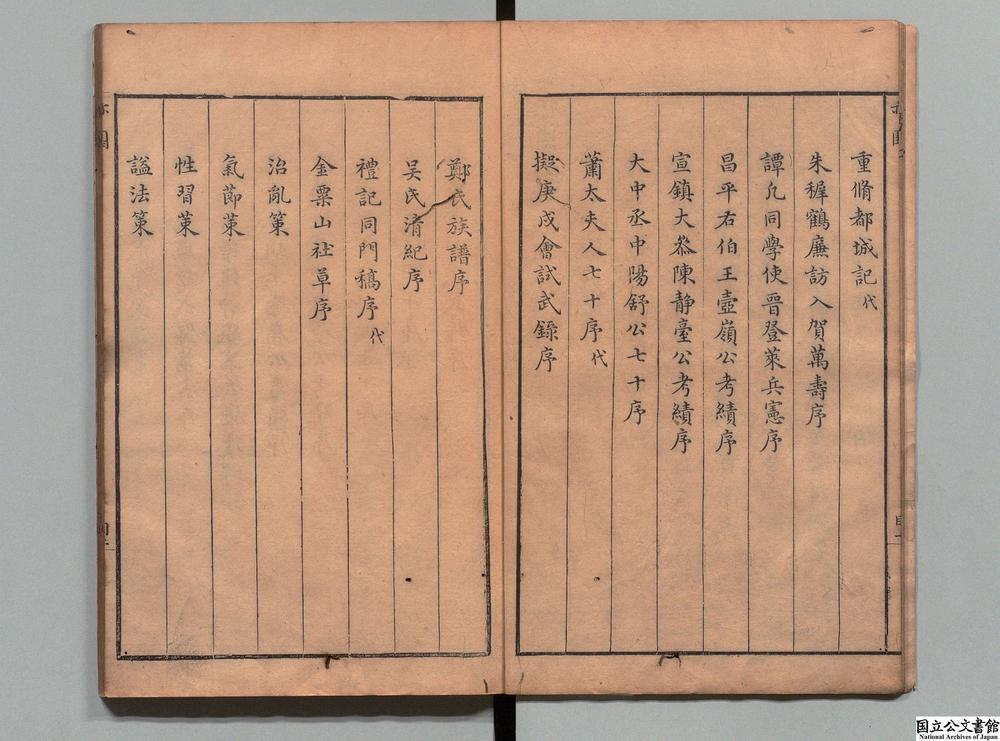 重脩都城記代
朱穉鶴廉訪入賀萬壽序
譚凡同學使晉登萊兵憲序
昌平右伯王壺嶺公考績序
宣鎮大叅陳靜臺公考績序
大中丞中陽舒公七十序
蕭太夫人七十序代
擬庚戌會試武錄序
鄭氏族譜序
吳氏清紀序
禮記同門稿序代
金粟山社草序
治亂策
氣節策
性習策
謚法策
国立公文書館
National Archives of Japan